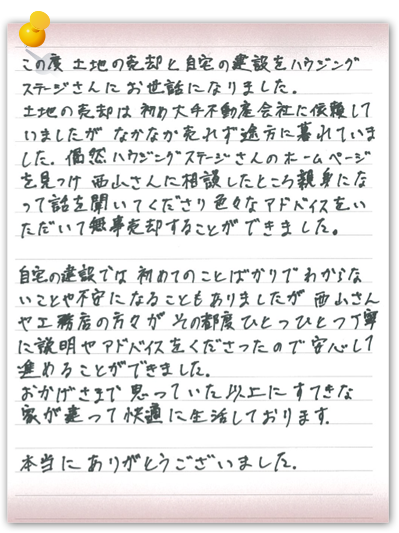 この度 土地の売却と自宅の建設をハウジング
ステージさんにお世話になりました。
土地の売却は初め大手不動産会社に依頼して
いましたが なかなか売れず途方に暮れていま
した。偶然ハウジングステージさんのホームページ
を見つけ 西山さんに相談したところ親身にな
って話を聞いてくださり色々なアドバイスをい
ただいて無事売却することができました。
自宅の建設では 初めてのことばかりでわからな
いことや不安になることもありましたが 西山さん
や工務店の方々が その都度ひとつひとつ丁寧
に説明やアドバイスをくださったので安心して
進めることができました。
おかげさまで 思っていた以上に すてきな
家が建って快適に生活しております。
本当に ありがとうございました。